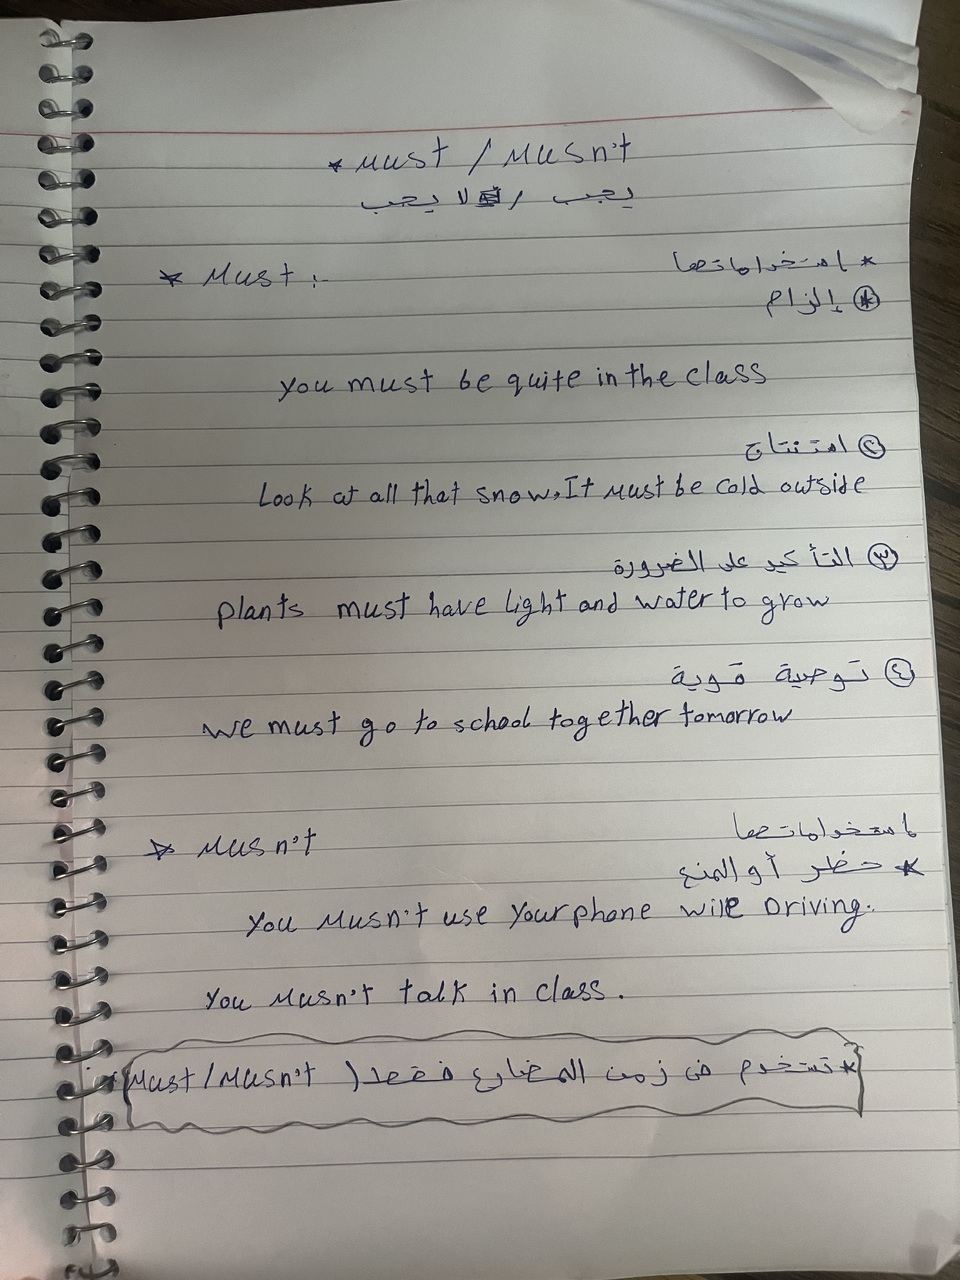 * Must / Musn't
يجب / لا يجب
* Must :-
* استخداماتها
* إلزام
you must be quite in the class
٢ استنتاج
Look at all that snow, It must be cold outside
٣ التأكيد على الضرورة
plants must have light and water to grow
٤ توصية قوية
we must go to school together tomorrow
* Musn't
استخداماتها
* حظر أو المنع
you Musn't use your phone wile Driving.
you Musn't talk in class.
* تستخدم في زمن المضارع فقط ( Must / Musn't